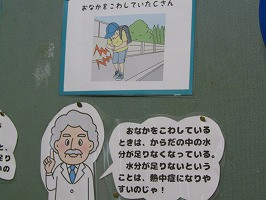 おなかをこわしていたCさん
おなかをこわしている
ときは、からだの中の水
分が足りなくなっている。
水分が足りないという
ことは、熱中症になりや
すいのじゃ！